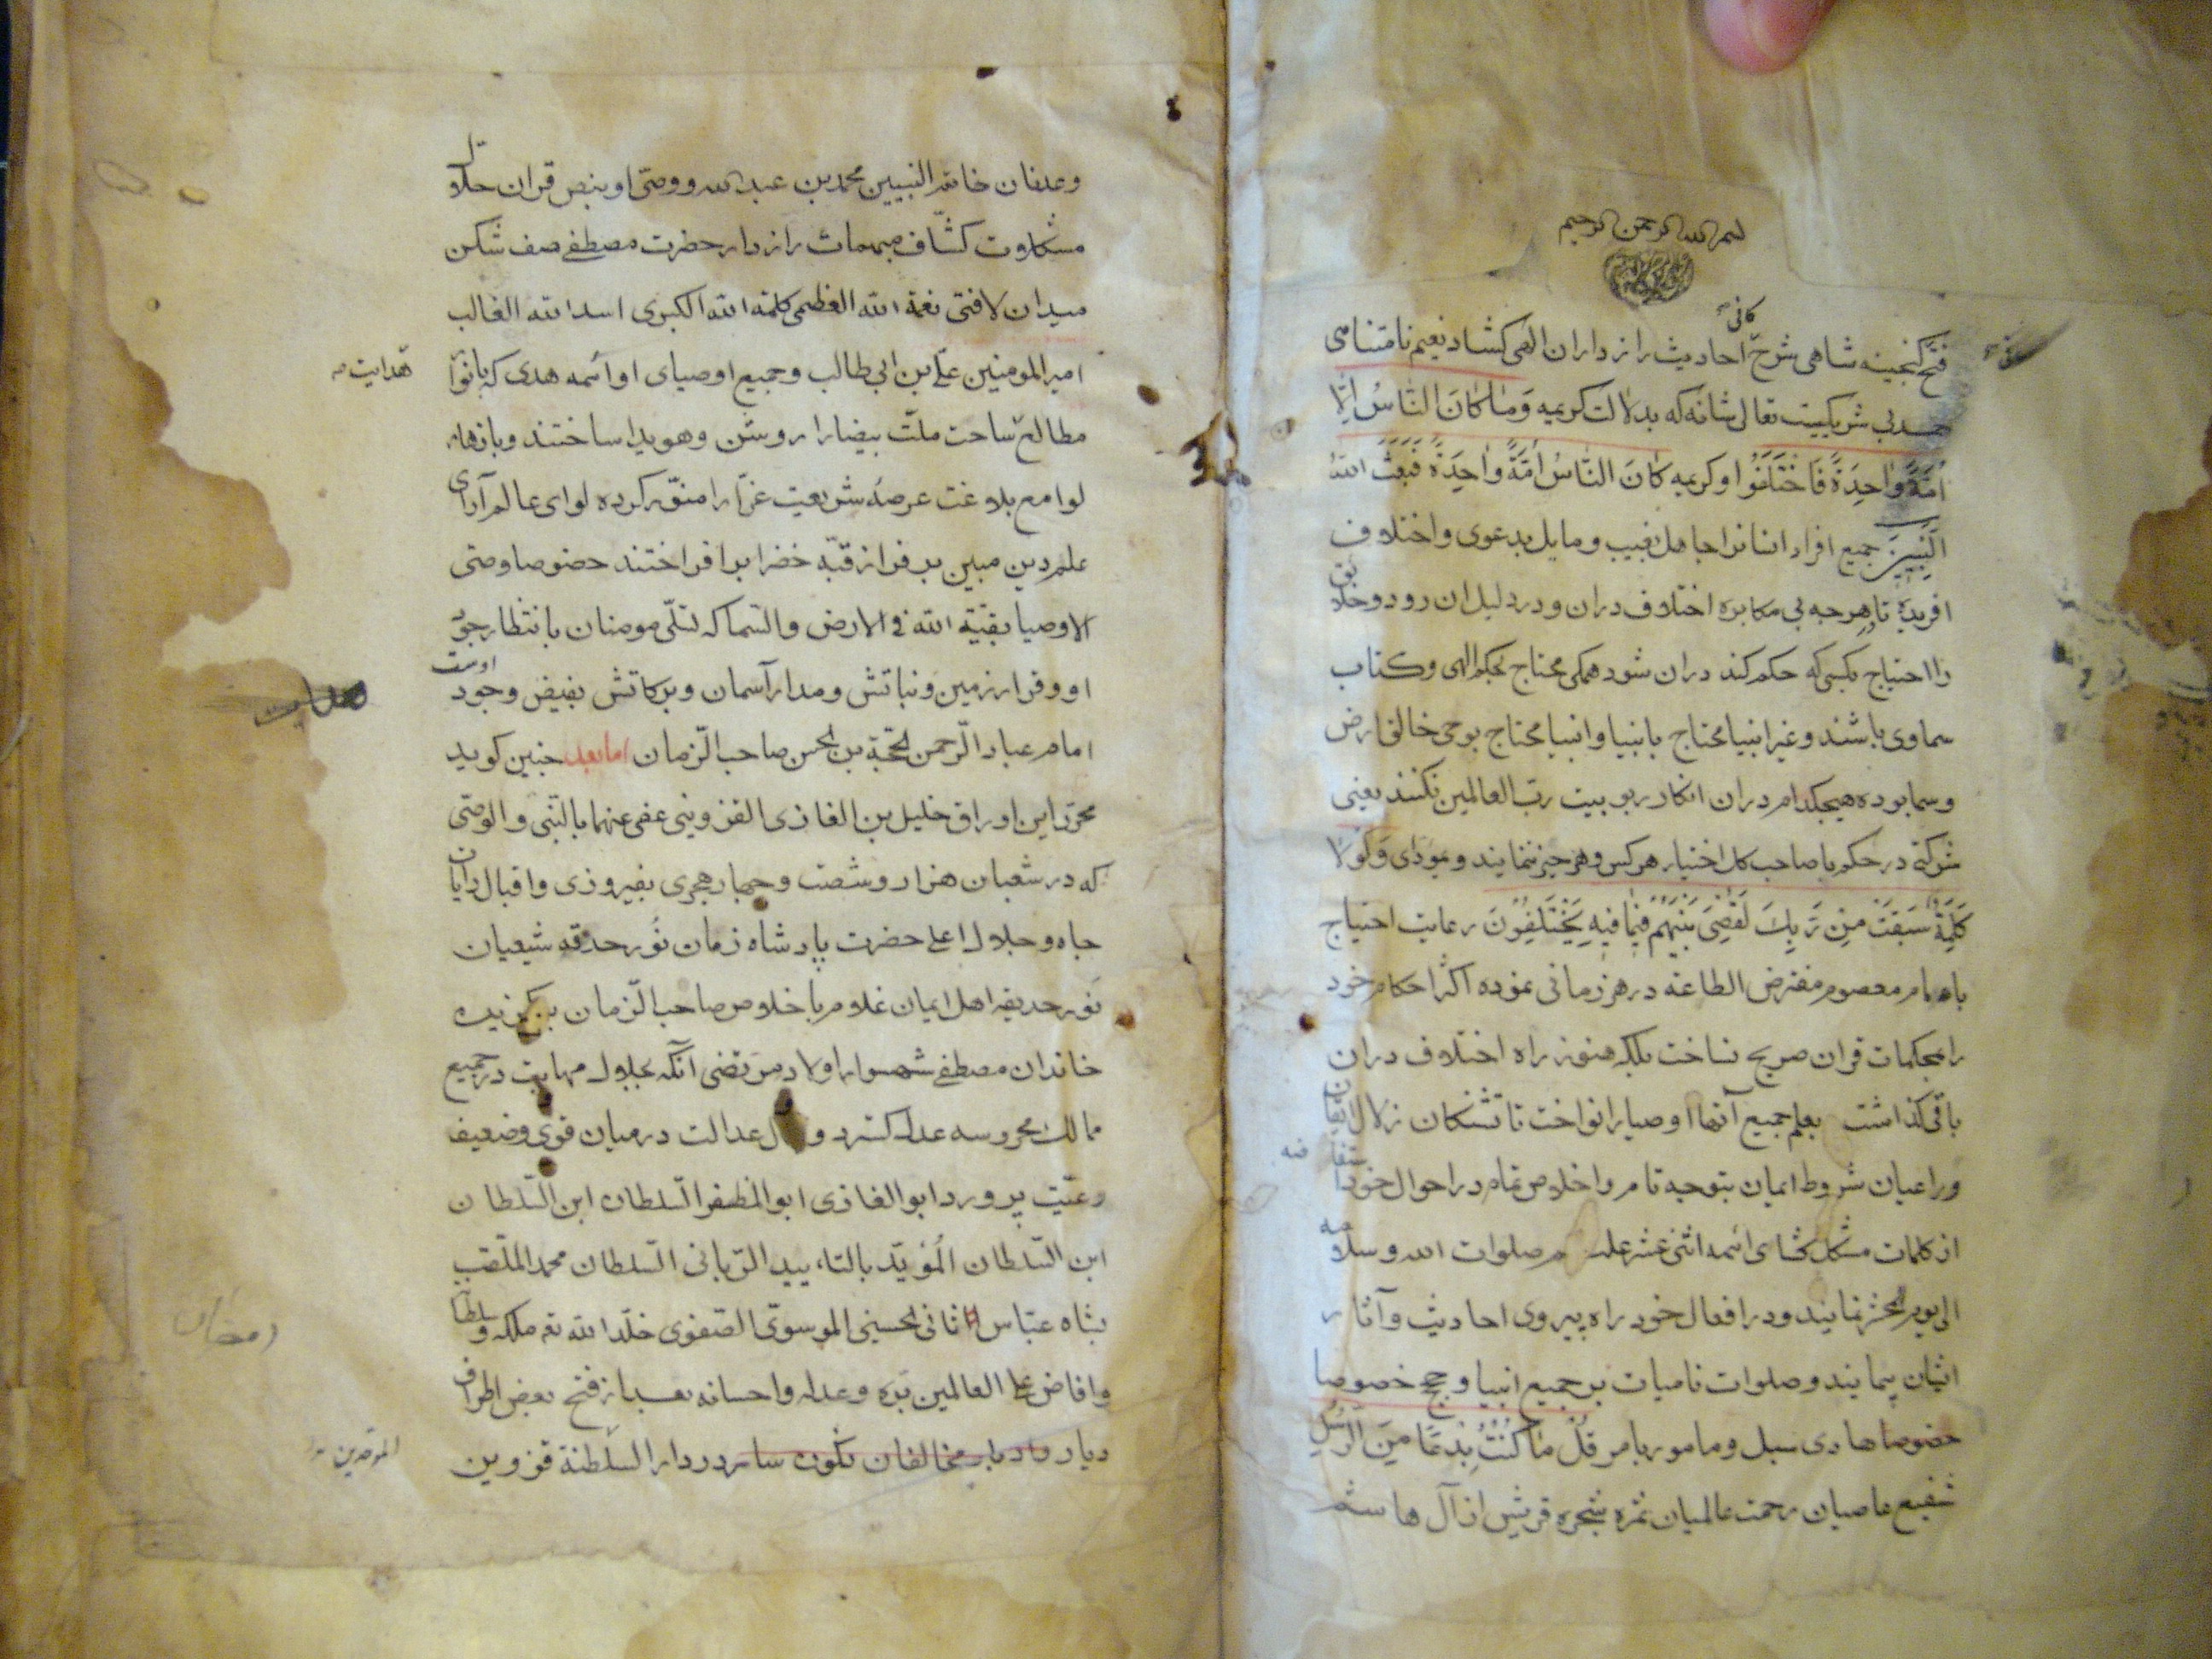 بسم الله الرحمن الرحیم
کافی
فتح کنجینه شاهی شرح احادیث رازداران الهی کشاد نعیم نامتناهی
حمد بی شریکیست تعالی شانه که بدلالت کریمه وَمَا كَانَ النَّاسُ اِلَّا
اُمَّةً وَاحِدَةً فَاخْتَلَفُوا و کریمه كَانَ النَّاسُ اُمَّةً وَاحِدَةً فَبَعَثَ اللهُ
النَّبِيِّينَ جمیع افراد انسانرا جاهل بغیب و مایل بدعوی و اختلاف
افریده تا هرچه بی مکابره اختلاف دران و در دلیل ان رود و خلایق
را احتیاج بکسی که حکم کند دران شود همکی محتاج بحکم الهی و کتاب
سماوی باشند و غیر انبیا محتاج بانبیا و انبیا محتاج بوحی خالق ارض
و سما بوده هیچکدام دران انکار ربوبیت رب العالمین نکنند یعنی
شرکت در حکم با صاحب کل اختیار هر کس و هر چیز ننمایند و بمودای وَلَوْلَا
كَلِمَةٌ سَبَقَتْ مِنْ رَبِّكَ لَقُضِيَ بَيْنَهُمْ فِيمَا فِيهِ يَخْتَلِفُونَ رعایت احتیاج
بامام معصوم مفترض الطاعة در هر زمانی نموده اکثر احکام خود
را بمحکمات قران صریح نساخت بلکه هنوز راه اختلاف دران
باقی کذاشت بعلم جمیع آنها اوصیا را نواخت تا تشنکان زلال ایقان
و راعیان شروط ایمان بتوجه تام و اخلاص تمام در احوال خود استفا
ضه
از کلمات مشکل کشای ائمه اثنی عشر علیهم صلوات الله و سلامه
الی یوم المحشر نمایند و در افعال خود راه پیروی احادیث و آثار
ایشان پیمایند و صلوات نامیات بر جمیع انبیا و حجج خصوصا
خصوصا هادی سبل و مامور بامر قُلْ مَا كُنْتُ بِدْعًا مِنَ الرُّسُلِ
شفیع عاصیان رحمت عالمیان ثمره شجره قریش از آل هاشم
و عدنان خاتم النبیین محمد بن عبد الله و وصی او بنص قران حلال
مشکلات کشّاف مبهمات رازدار حضرت مصطفی صف شکن
میدان لافتی نعمة الله العظمی کلمة الله الکبری اسد الله الغالب
امیر المومنین علی بن ابی طالب و جمیع اوصیای او ائمه هدی که بانوار
هدایت
مطالع ساحت ملّت بیضا را روشن و هویدا ساختند و بازهار
لوامع بلاغت عرصه شریعت غرّا را منوّر کرده لوای عالم آرای
علم دین مبین بر فراز قبّه خضرا برافراختند خصوصا وصی
الاوصیا بقیّة الله فی الارض و السّما که تسلّی مومنان بانتظار جوّ
او و قرار زمین و نباتش و مدار آسمان و برکاتش بفیض وجود اوست
امام عباد الرّحمن الحجّة بن الحسن صاحب الزّمان اما بعد چنین کوید
محرّر این اوراق خلیل بن الغازی القزوینی عفی عنهما بالنّبی و الوصی
که در شعبان هزار و شصت و چهار هجری بفیروزی و اقبال رایان
جاه و جلال اعلی حضرت پادشاه زمان نُور حدقه شیعیان
نَور حدیقه اهل ایمان غلام باخلاص صاحب الزّمان برکزیده
خاندان مصطفی شهسوار اولاد مرتضی آنکه بجلال مهابت در جمیع
ممالک محروسه عدل کسترد و ل عدالت درمیان قوی و ضعیف
رعیّت پرورد ابو الغازی ابو المظفر السّلطان ابن السّلطان
ابن السّلطان المُؤیّد بالتایید الرّبانی السّلطان محمد الملّقب
بشاه عبّاس الثانی الحسینی الموسوی الصّفوی خلّد الله تع ملکه و سلطانه
و افاض علی العالمین برّه و عدله و احسانه بعد از فتح بعض اطراف
رمضان
دیار مخالفان نکون سار در دار السّلطنة قزوین